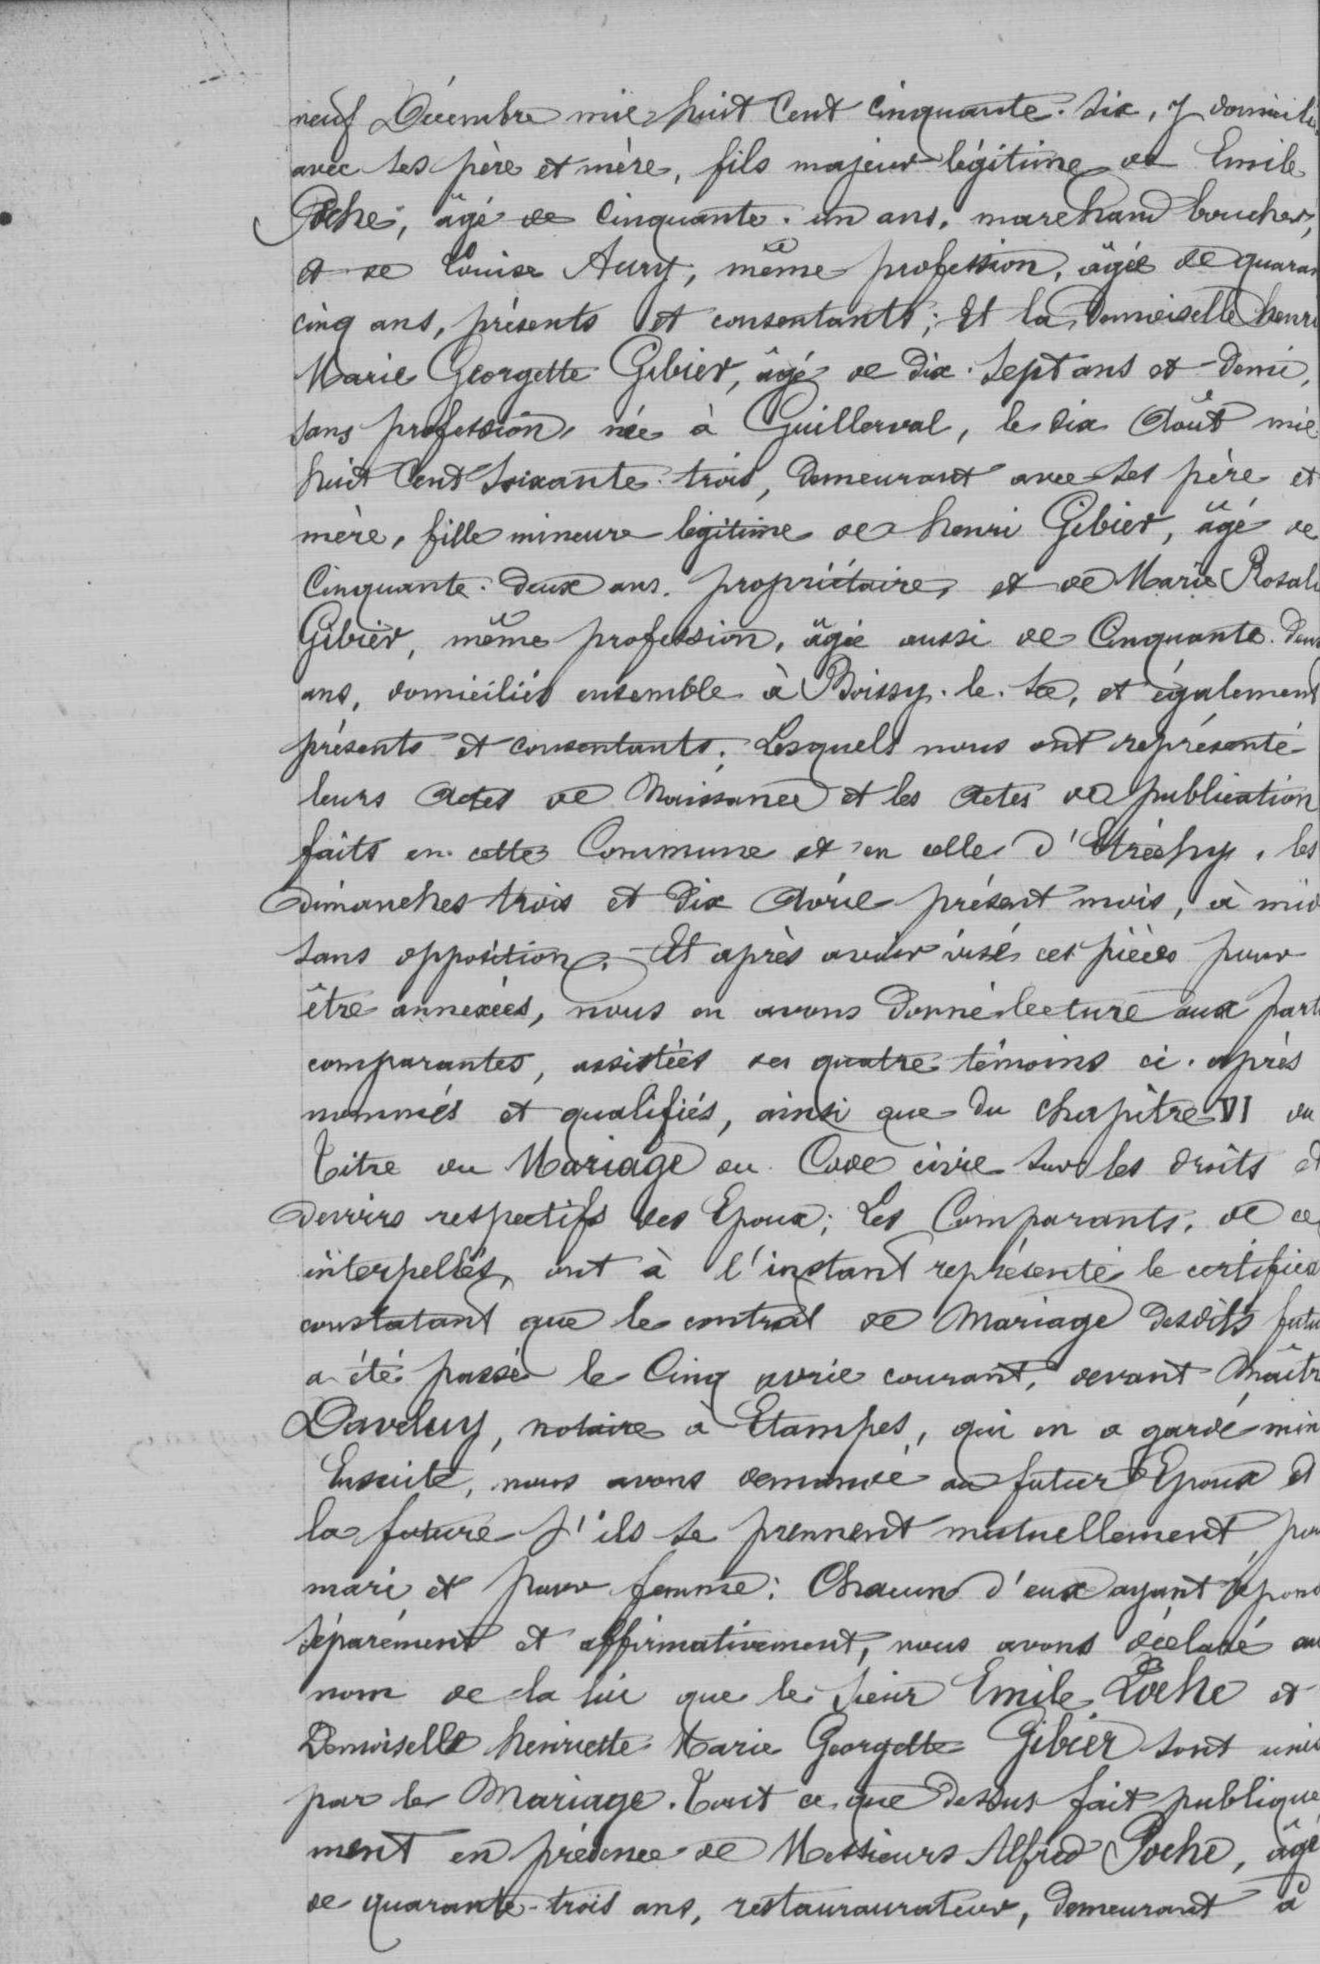 neuf Décembre mil huit Cent Cinquante-six, y domicilié
avec ses père et mère, fils majeur légitime de Emile
Poche, âgé de Cinquante-un ans, marchand boucher,
et de Louise Aury, même profession, âgée de quaran
cinq ans, présents et consentants; Et la Demoiselle henri
Marie Georgette Gibier, âgé de Dix-Sept ans et demi,
sans profession, née à Guillerval, le dix Août mil
huit Cent soixante-trois, Demeurant avec ses père et
mère, fille mineure légitime de henri Gibier, âgé de
Cinquante-Deux ans, propriétaire, et de Marie Rosali
Gibier, même profession, âgée aussi de Cinquante-Deux
ans, domiciliés ensemble à Boissy-le-Sec, et également
présents et consentants. Lesquels nous ont représenté
leurs Actes de Naissance et les Actes de publication
faits en cette Commune et en celle d'Etréchy, les
dimanches trois et dix Avril présent mois, à midi
sans opposition. Et après avoir visé ces pièces pour
être annexées, nous en avons Donné lecture aux parti
comparantes, assistées des quatre témoins ci-après
nommés et qualifiés, ainsi que du chapitre VI du
Titre du Mariage du Code civil sur les droits et
Devoirs respectifs des Epoux; Les Comparants, de ce
interpellés, ont à l'instant représenté le certifica
constatant que le contrat de Mariage desdits futu
a été passé le Cinq avril courant, devant Maître
Daveluy, notaire à Etampes, qui en a gardé min
Ensuite, nous avons demandé au futur Epoux et
la future s'ils se prennent mutuellement pour
mari et pour femme: Chacun d'eux ayant répond
séparément et affirmativement, nous avons déclaré au
nom de la loi que le sieur Emile Poche et
Demoiselle henriette Marie Georgette Gibier sont unis
par le Mariage. Tout ce que dessus fait publique
ment en présence de Messieurs Alfred Poche, âgé
de quarante-trois ans, restauraurateur, demeurant à